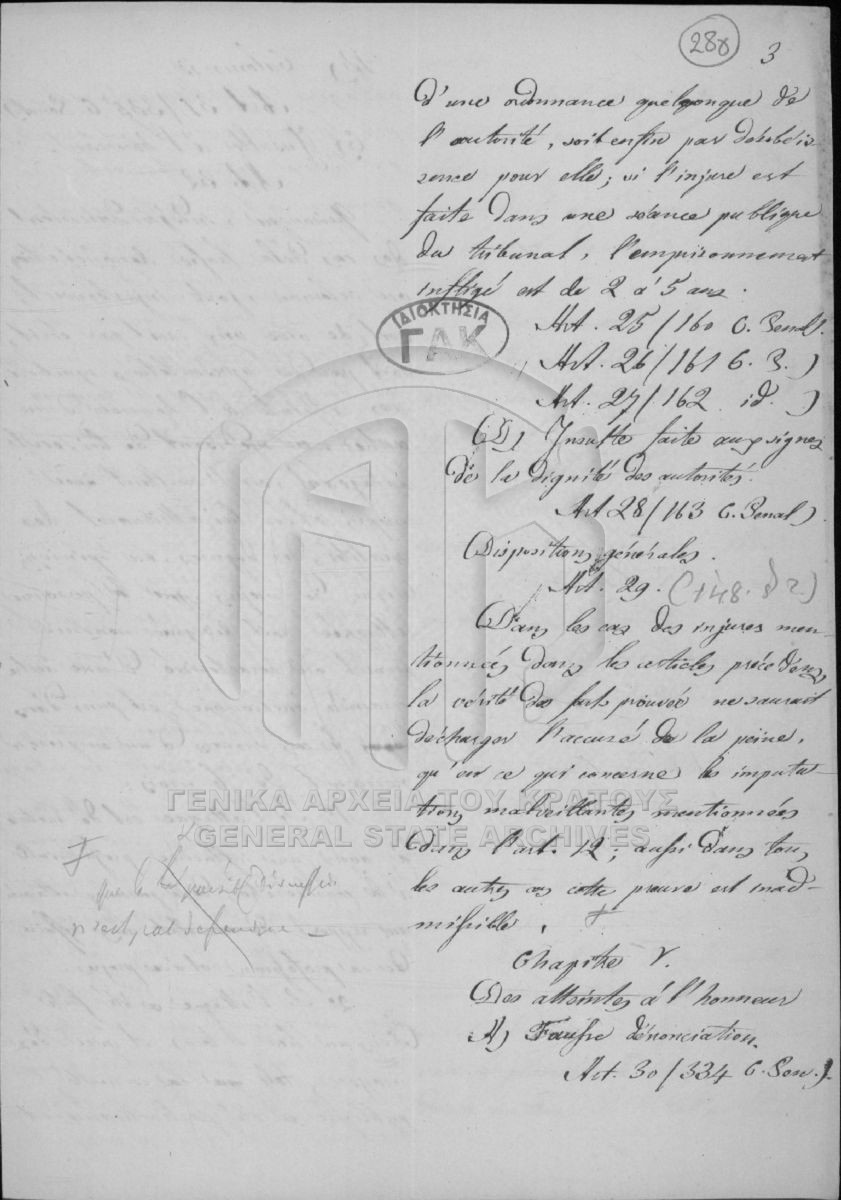 288
3
d'une ordonnance quelqonque de
l'autorité, soit enfin par désobéis
sence pour elle; si l'injure est
faite dans une séance publique
du tribunal, l'emprisonnement
infligé est de 2 à 5 ans.
ΙΔΙΟΚΤΗΣΙΑ
ΓΑΚ
Art. 25/160 C. Penal.
Art. 26/161 C. P.)
Art. 27/162 id.)
D) Insulte faite aux signes
de la dignité des autorités.
Art 28/163 C. Penal)
Dispositions générales.
Art. 29. (148. § 2.)
Dans les cas des injures men-
tionnées dans les articles précédens
la vérité des faits prouvée ne saurait
décharger l'accusé de la peine,
qu'en ce qui concerne les imputa-
tions malveillantes mentionnées
ΓΕΝΙΚΑ ΑΡΧΕΙΑ ΤΟΥ ΚΡΑΤΟΥΣ
GENERAL STATE ARCHIVES
dans l'art. 12; aussi dans tous
les autres cas cette preuve est inad-
missible. ‡
‡
que le
n'est pas
Chapitre V.
Des atteintes à l'honneur
A) Fausse dénonciation.
Art. 30/334 C. Pen.).